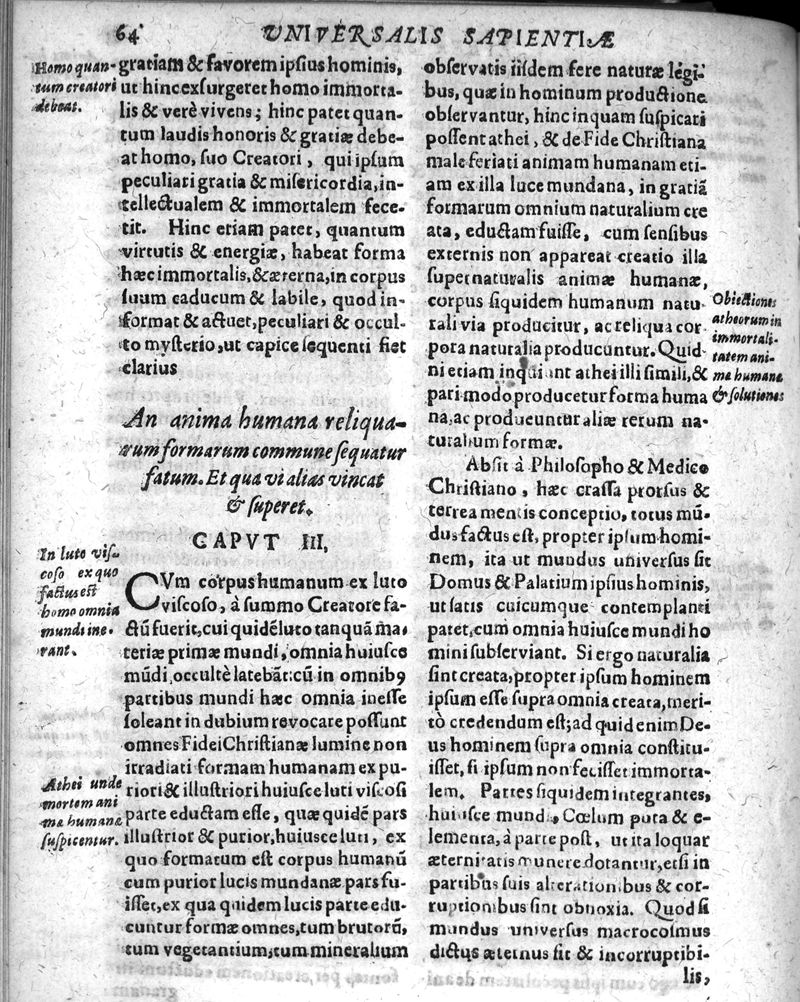 64 UNIVERSALIS SAPIENTIÆ
Homo quan-
tum creatori
debeat.
gratiam & favorem ipſius hominis,
ut hinc exſurgeret homo immorta-
lis & verè vivens; hinc patet quan-
tum laudis honoris & gratiæ debe-
at homo, ſuo Creatori, qui ipſum
peculiari gratia & miſericordia, in-
tellectualem & immortalem fece-
tit. Hinc etiam patet, quantum
virtutis & energiæ, habeat forma
hæc immortalis, & æterna, in corpus
ſuum caducum & labile, quod in-
format & actuet, peculiari & occul-
to myſterio, ut capice ſequenti fiet
clarius
An anima humana reliqua-
rum formarum commune ſequatur
fatum. Et qua vi alias vincat
& ſuperet.
CAPVT III.
In luto viſ-
coſo ex quo
factus eſt
homo omnia
mundi ine-
rant.
CVm corpus humanum ex luto
viſcoſo, à ſummo Creatore fa-
ctũ fuerit, cui quidẽ luto tanquã ma-
teriæ primæ mundi, omnia huiuſce
mũdi, occultè latebãt: cũ in omnibꝰ
partibus mundi hæc omnia ineſſe
ſoleant in dubium revocare poſſunt
omnes Fidei Chriſtianæ lumine non
irradiati formam humanam ex pu-
riori & illuſtriori huiuſce luti viſcoſi
parte eductam eſſe, quæ quidẽ pars
illuſtrior & purior, huiusce luti, ex
quo formatum eſt corpus humanũ
cum purior lucis mundanæ pars fu-
iſſet, ex qua quidem lucis parte edu-
cuntur formæ omnes, tum brutorũ,
tum vegetantium, tum mineralium
Athei unde
mortem ani
mæ humanæ
ſuſpicentur.
obſervatis iiſdem fere naturæ légi-
bus, quæ in hominum productione
obſervantur, hinc inquam ſuſpicari
poſſent athei, & de Fide Chriſtiana
male feriati animam humanam eti-
am ex illa luce mundana, in gratiã
formarum omnium naturalium cre
ata, eductam fuiſſe, cum ſenſibus
externis non appareat creatio illa
ſupernaturalis animæ humanæ,
corpus ſiquidem humanum natu
rali via producitur, ac reliqua cor-
pora naturalia producuntur. Quid-
ni etiam inquiunt athei illi ſimili, &
pari modo producetur forma huma
na, ac producuntur aliæ rerum na-
turalium formæ.
Obiectiones
atheorum in
immortali-
tatem ani-
mæ humanæ
& ſolutiones
Abſit à Philoſopho & Medico
Chriſtiano, hæc craſſa prorſus &
terrea mentis conceptio, totus mũ-
dus factus eſt, propter ipſum homi-
nem, ita ut mundus univerſus ſit
Domus & Palatium ipſius hominis,
ut ſatis cuicumque contemplanti
patet, cum omnia huiuſce mundi ho
mini ſubſerviant. Si ergo naturalia
ſint creata, propter ipſum hominem
ipſum eſſe ſupra omnia creata, meri-
tò credendum eſt; ad quid enim De-
us hominem ſupra omnia conſtitu-
iſſet, ſi ipſum non feciſſet immorta-
lem. Partes ſiquidem integrantes,
huiuſce mundi, Cœlum puta & e-
lementa, à parte poſt, ut ita loquar
æternitatis munere dotantur, etſi in
partibus ſuis alterationibus & cor-
ruptionibus ſint obnoxia. Quod ſi
mundus univerſus macrocoſmus
dictus æternus ſit & incorruptibi-
lis,